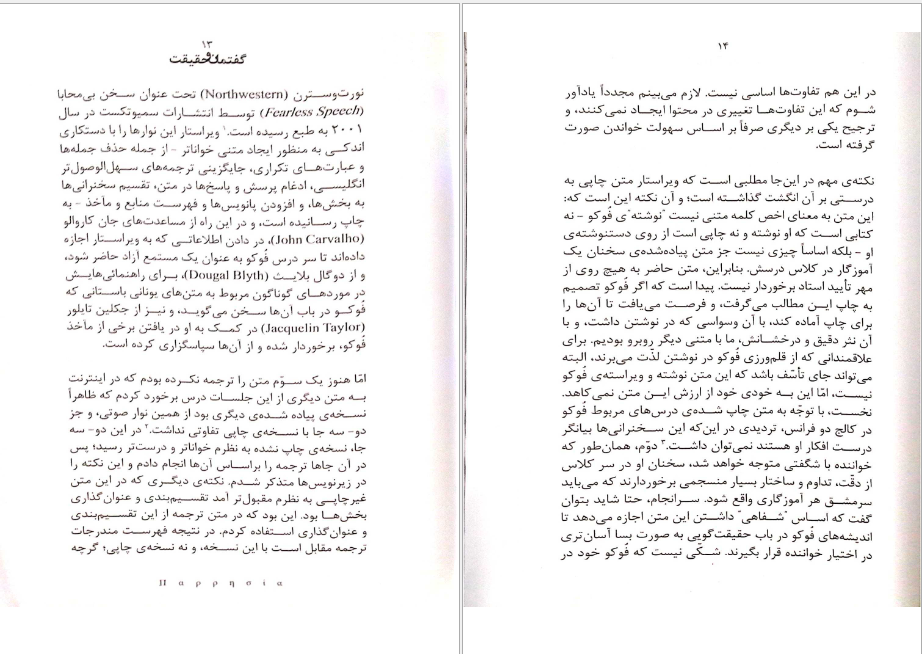 ۱۳
گفتمان و حقیقت
نورت‌وسترن (Northwestern) تحت عنوان سخن بی‌محابا
(Fearless Speech) توسط انتشارات سمیوتکست در سال
۲۰۰۱ به طبع رسیده است.۱ ویراستار این نوارها را با دستکاری
اندکی به منظور ایجاد متنی خواناتر - از جمله حذف جمله‌ها
و عبارت‌های تکراری، جایگزینی ترجمه‌های سهل‌الوصول‌تر
انگلیسی، ادغام پرسش و پاسخ‌ها در متن، تقسیم سخنرانی‌ها
به بخش‌ها، و افزودن پانویس‌ها و فهرست منابع و مآخذ - به
چاپ رسانیده است، و در این راه از مساعدت‌های جان کاروالو
(John Carvalho)، در دادن اطلاعاتی که به ویراستار اجازه
داده‌اند تا سر درس فوکو به عنوان یک مستمع آزاد حاضر شود،
و از دوگال بلایث (Dougal Blyth)، برای راهنمائی‌هایش
در موردهای گوناگون مربوط به متن‌های یونانی باستانی که
فوکو در باب آن‌ها سخن می‌گوید، و نیز از جکلین تایلور
(Jacquelin Taylor) در کمک به او در یافتن برخی از مآخذ
فوکو، برخوردار شده و از آن‌ها سپاسگزاری کرده است.
امّا هنوز یک سوّم متن را ترجمه نکرده بودم که در اینترنت
به متن دیگری از این جلسات درس برخورد کردم که ظاهراً
نسخه‌ی پیاده شده‌ی دیگری بود از همین نوار صوتی، و جز
دو- سه جا با نسخه‌ی چاپی تفاوتی نداشت.۲ در این دو- سه
جا، نسخه‌ی چاپ نشده به نظرم خواناتر و درست‌تر رسید؛ پس
در آن جاها ترجمه را براساس آن‌ها انجام دادم و این نکته را
در زیرنویس‌ها متذکر شدم. نکته‌ی دیگری که در این متن
غیرچاپی به نظرم مقبول‌تر آمد تقسیم‌بندی و عنوان‌گذاری
بخش‌ها بود. این بود که در متن ترجمه از این تقسیم‌بندی
و عنوان‌گذاری استفاده کردم. در نتیجه فهرست مندرجات
ترجمه مقابل است با این نسخه، و نه نسخه‌ی چاپی؛ گرچه
Π α ρ ρ η σ ί α
۱۴
در این هم تفاوت‌ها اساسی نیست. لازم می‌بینم مجدداً یادآور
شوم که این تفاوت‌ها تغییری در محتوا ایجاد نمی‌کنند، و
ترجیح یکی بر دیگری صرفاً بر اساس سهولت خواندن صورت
گرفته است.
نکته‌ی مهم در این‌جا مطلبی است که ویراستار متن چاپی به
درستی بر آن انگشت گذاشته است؛ و آن نکته این است که:
این متن به معنای اخص کلمه متنی نیست "نوشته"ی فوکو - نه
کتابی است که او نوشته و نه چاپی است از روی دستنوشته‌ی
او - بلکه اساساً چیزی نیست جز متن پیاده‌شده‌ی سخنان یک
آموزگار در کلاس درسش. بنابراین، متن حاضر به هیچ روی از
مهر تأیید استاد برخوردار نیست. پیدا است که اگر فوکو تصمیم
به چاپ این مطالب می‌گرفت، و فرصت می‌یافت تا آن‌ها را
برای چاپ آماده کند، با آن وسواسی که در نوشتن داشت، و با
آن نثر دقیق و درخشانش، ما با متنی دیگر روبرو بودیم. برای
علاقمندانی که از قلم‌ورزی فوکو در نوشتن لذّت می‌برند، البته
می‌تواند جای تأسّف باشد که این متن نوشته و ویراسته‌ی فوکو
نیست، امّا این به خودی خود از ارزش این متن نمی‌کاهد.
نخست، با توجّه به متن چاپ شده‌ی درس‌های مربوط فوکو
در کالج دو فرانس، تردیدی در این‌که این سخنرانی‌ها بیانگر
درست افکار او هستند نمی‌توان داشت.۳ دوّم، همان‌طور که
خواننده با شگفتی متوجه خواهد شد، سخنان او در سر کلاس
از دقّت، تداوم و ساختار بسیار منسجمی برخوردارند که می‌باید
سرمشق هر آموزگاری واقع شود. سرانجام، حتا شاید بتوان
گفت که اساس "شفاهی" داشتن این متن اجازه می‌دهد تا
اندیشه‌های فوکو در باب حقیقت‌گویی به صورت بسا آسان‌تری
در اختیار خواننده قرار بگیرند. شکّی نیست که فوکو خود در